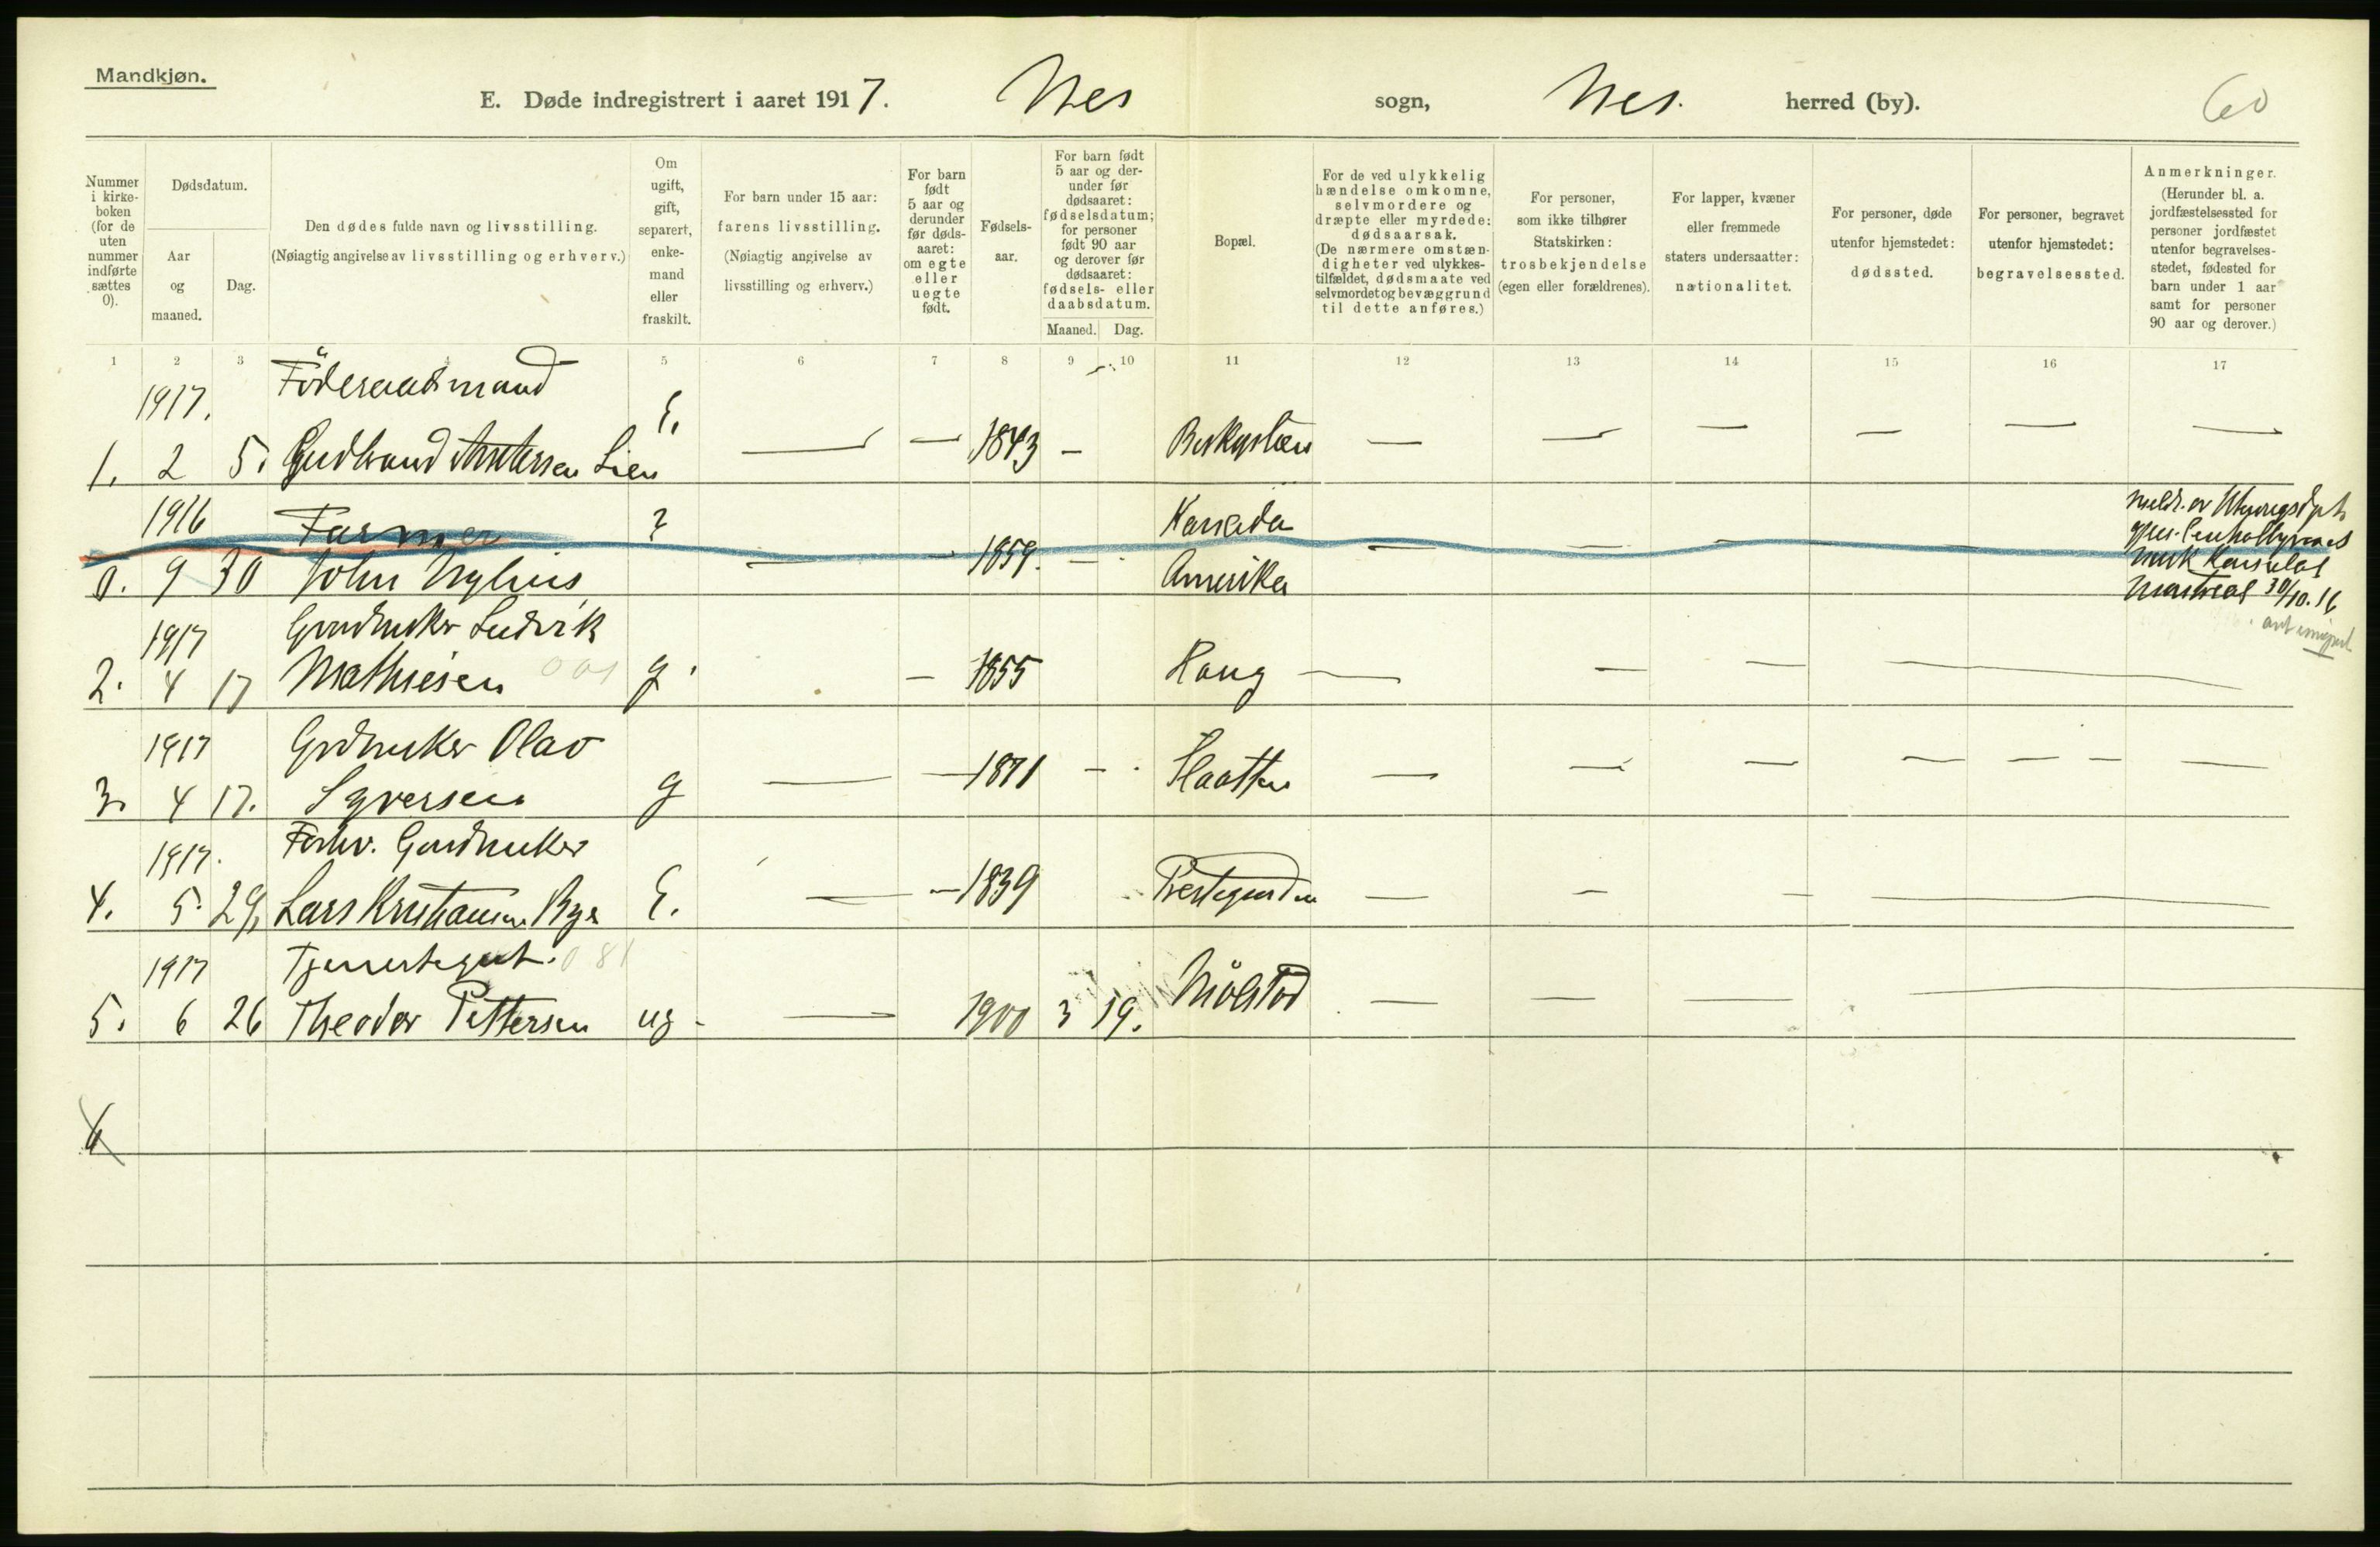 Mandkjøn.
E. Døde indregistrert i aaret 1917. Nes sogn, Nes. herred (by). 60
Nummer i kirke- boken (for de uten nummer indførte sættes 0).
Dødsdatum.
Aar og maaned.
Dag.
Den dødes fulde navn og livsstilling.
(Nøiagtig angivelse av livsstilling og erhverv.)
Om ugift, gift, separert, enke- mand eller fraskilt.
For barn under 15 aar:
farens livsstilling.
(Nøiagtig angivelse av
livsstilling og erhverv.)
For barn født 5 aar og derunder før døds- aaret: om egte eller uegte født.
Fødsels- aar.
For barn født 5 aar og der- under før dødsaaret: fødselsdatum; for personer født 90 aar og derover før dødsaaret: fødsels- eller daabsdatum.
Maaned. Dag.
Bopæl.
For de ved ulykkelig hændelse omkomne, selvmordere og dræpte eller myrdede: dødsaarsak. (De nærmere omstæn- digheter ved ulykkes- tilfældet, dødsmaate ved selvmordet og bevæggrund til dette anføres.)
For personer, som ikke tilhører Statskirken: trosbekjendelse (egen eller forældrenes).
For lapper, kvæner eller fremmede staters undersaatter: nationalitet.
For personer, døde utenfor hjemstedet: dødssted.
For personer, begravet utenfor hjemstedet: begravelsessted.
Anmerkninger. (Herunder bl. a. jordfæstelsessted for personer jordfæstet utenfor begravelses- stedet, fødested for barn under 1 aar samt for personer 90 aar og derover.)
1 2 3 4 5 6 7 8 9 10 11 12 13 14 15 16 17
1917. Föderaadsmand
1. 2 5. Gudbrand Lien E. — — 1843 — — — — — — —
1916 Farmer ? Kanada
0. 9 30 John Nyhus — — 1859. — Amerika — — —
Montreal 30/10.16
1917 Gaardbruker Ludvik
2. 4 17 Mathiesen g. — 1855 Haug — — — —
1917 Grdbruker Olav
3. 4 17. Syversen g — — 1871 — Slaatten — — — — — — —
1917. Forhv. Gardbruker
4. 5. 29 Lars Kristiansen Rye E. — — 1839 Prestegarden — — — —
1917 Tjenestegut.
5. 6 26 Theodor Pettersen ug - — 1900 3 19. Mölstad — — — —
6